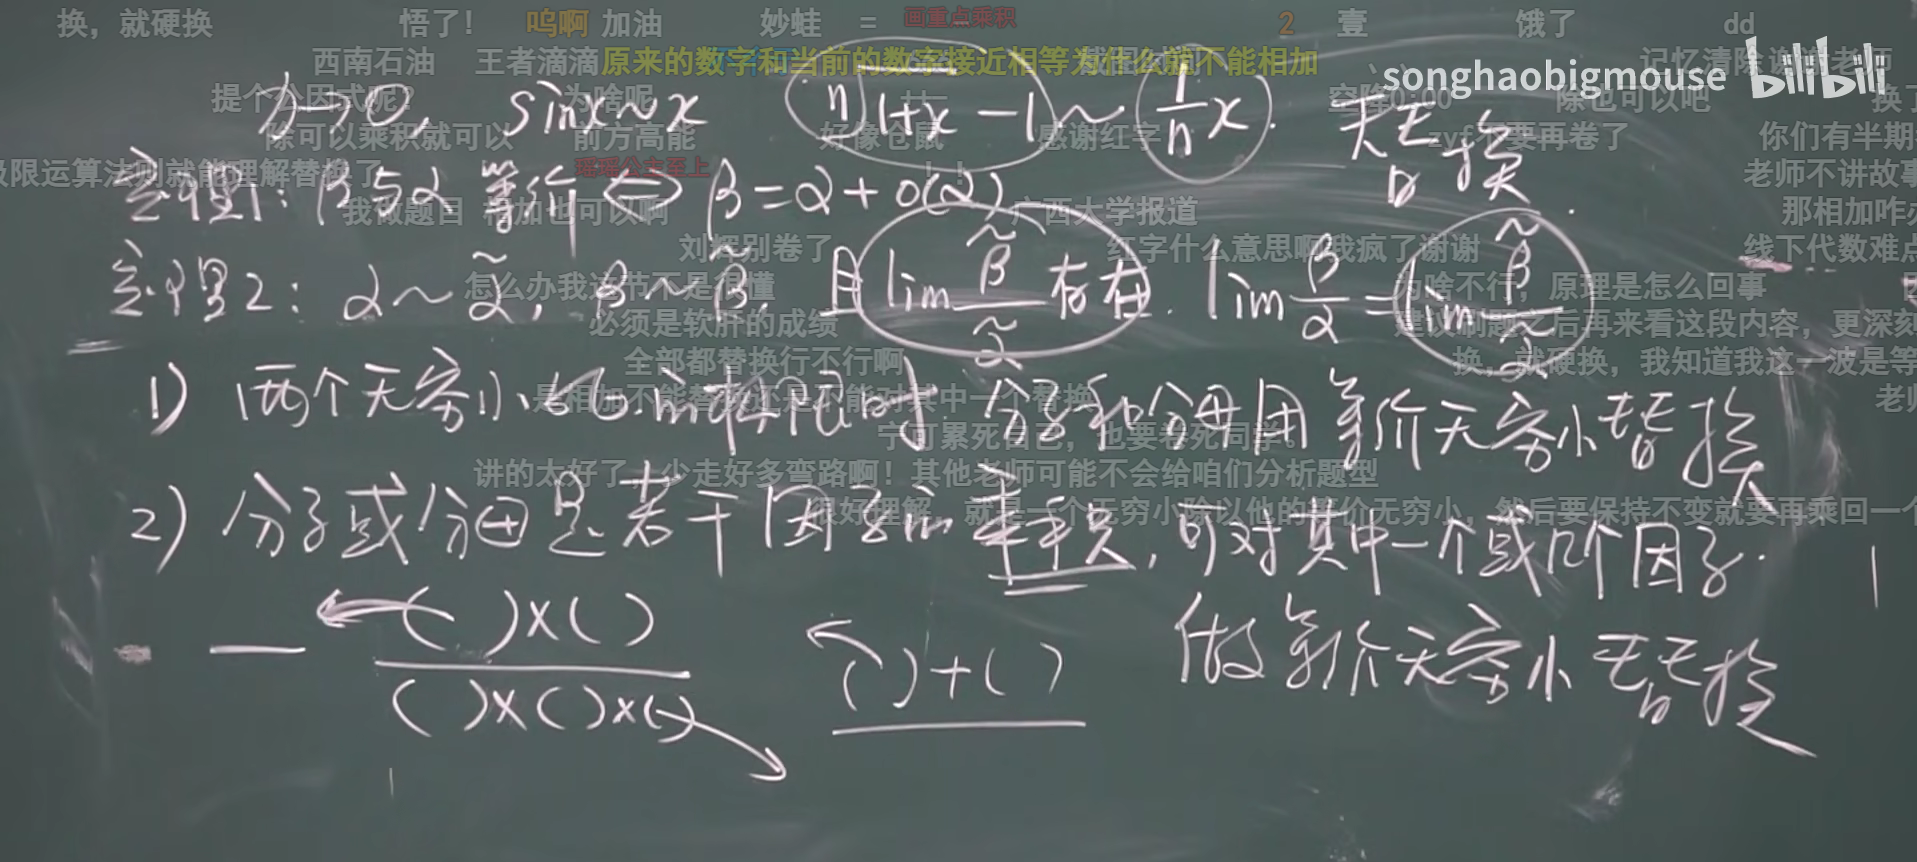 换，就硬换 悟了! 呜啊 加油 妙蛙 = 画重点乘积 2 壹 饿了 dd
西南石油 王者滴滴 原来的数字和当前的数字接近相等为什么就不能相加 记忆清除 谢谢老师
songhaobigmouse bilibili
提个公因式呢? 为啥呢 除也可以吧 换了
x→0, sinx~x ⁿ√1+x −1 ~ 1/n x. 替换
除可以乘积就可以 前方高能 好像仓鼠 感谢红字 要再卷了 你们有半期
极限运算法则就能理解替换了 瑶瑶公主至上 !! 老师不讲故事
定理1: β与α等价 ⇔ β=α+o(α).
我做题目 相加也可以啊 广西大学报道 那相加咋办
刘辉别卷了 红字什么意思啊我疯了谢谢 线下代数难点
定理2: α~α̃, β~β̃, 且 lim β̃/α̃ 存在. lim β/α = lim β̃/α̃
怎么办我这节不是很懂 为啥不行，原理是怎么回事
必须是软肝的成绩 建议刷题之后再来看这段内容，更深刻
全部都替换行不行啊 换，就硬换，我知道我这一波是等
1) 两个无穷小比的极限时 分子和分母用等价无穷小替换
是相加不能替换还是不能对其中一个替换 老师
宁可累死自己，也要卷死同学。
讲的太好了，少走好多弯路啊！其他老师可能不会给咱们分析题型
2) 分子或分母是若干因子的乘积, 可对其中一个或几个因子.
很好理解，就是一个无穷小除以他的等价无穷小，然后要保持不变就要再乘回一个
做等价无穷小替换
( )×( ) ( )+( )
( )×( )×( )